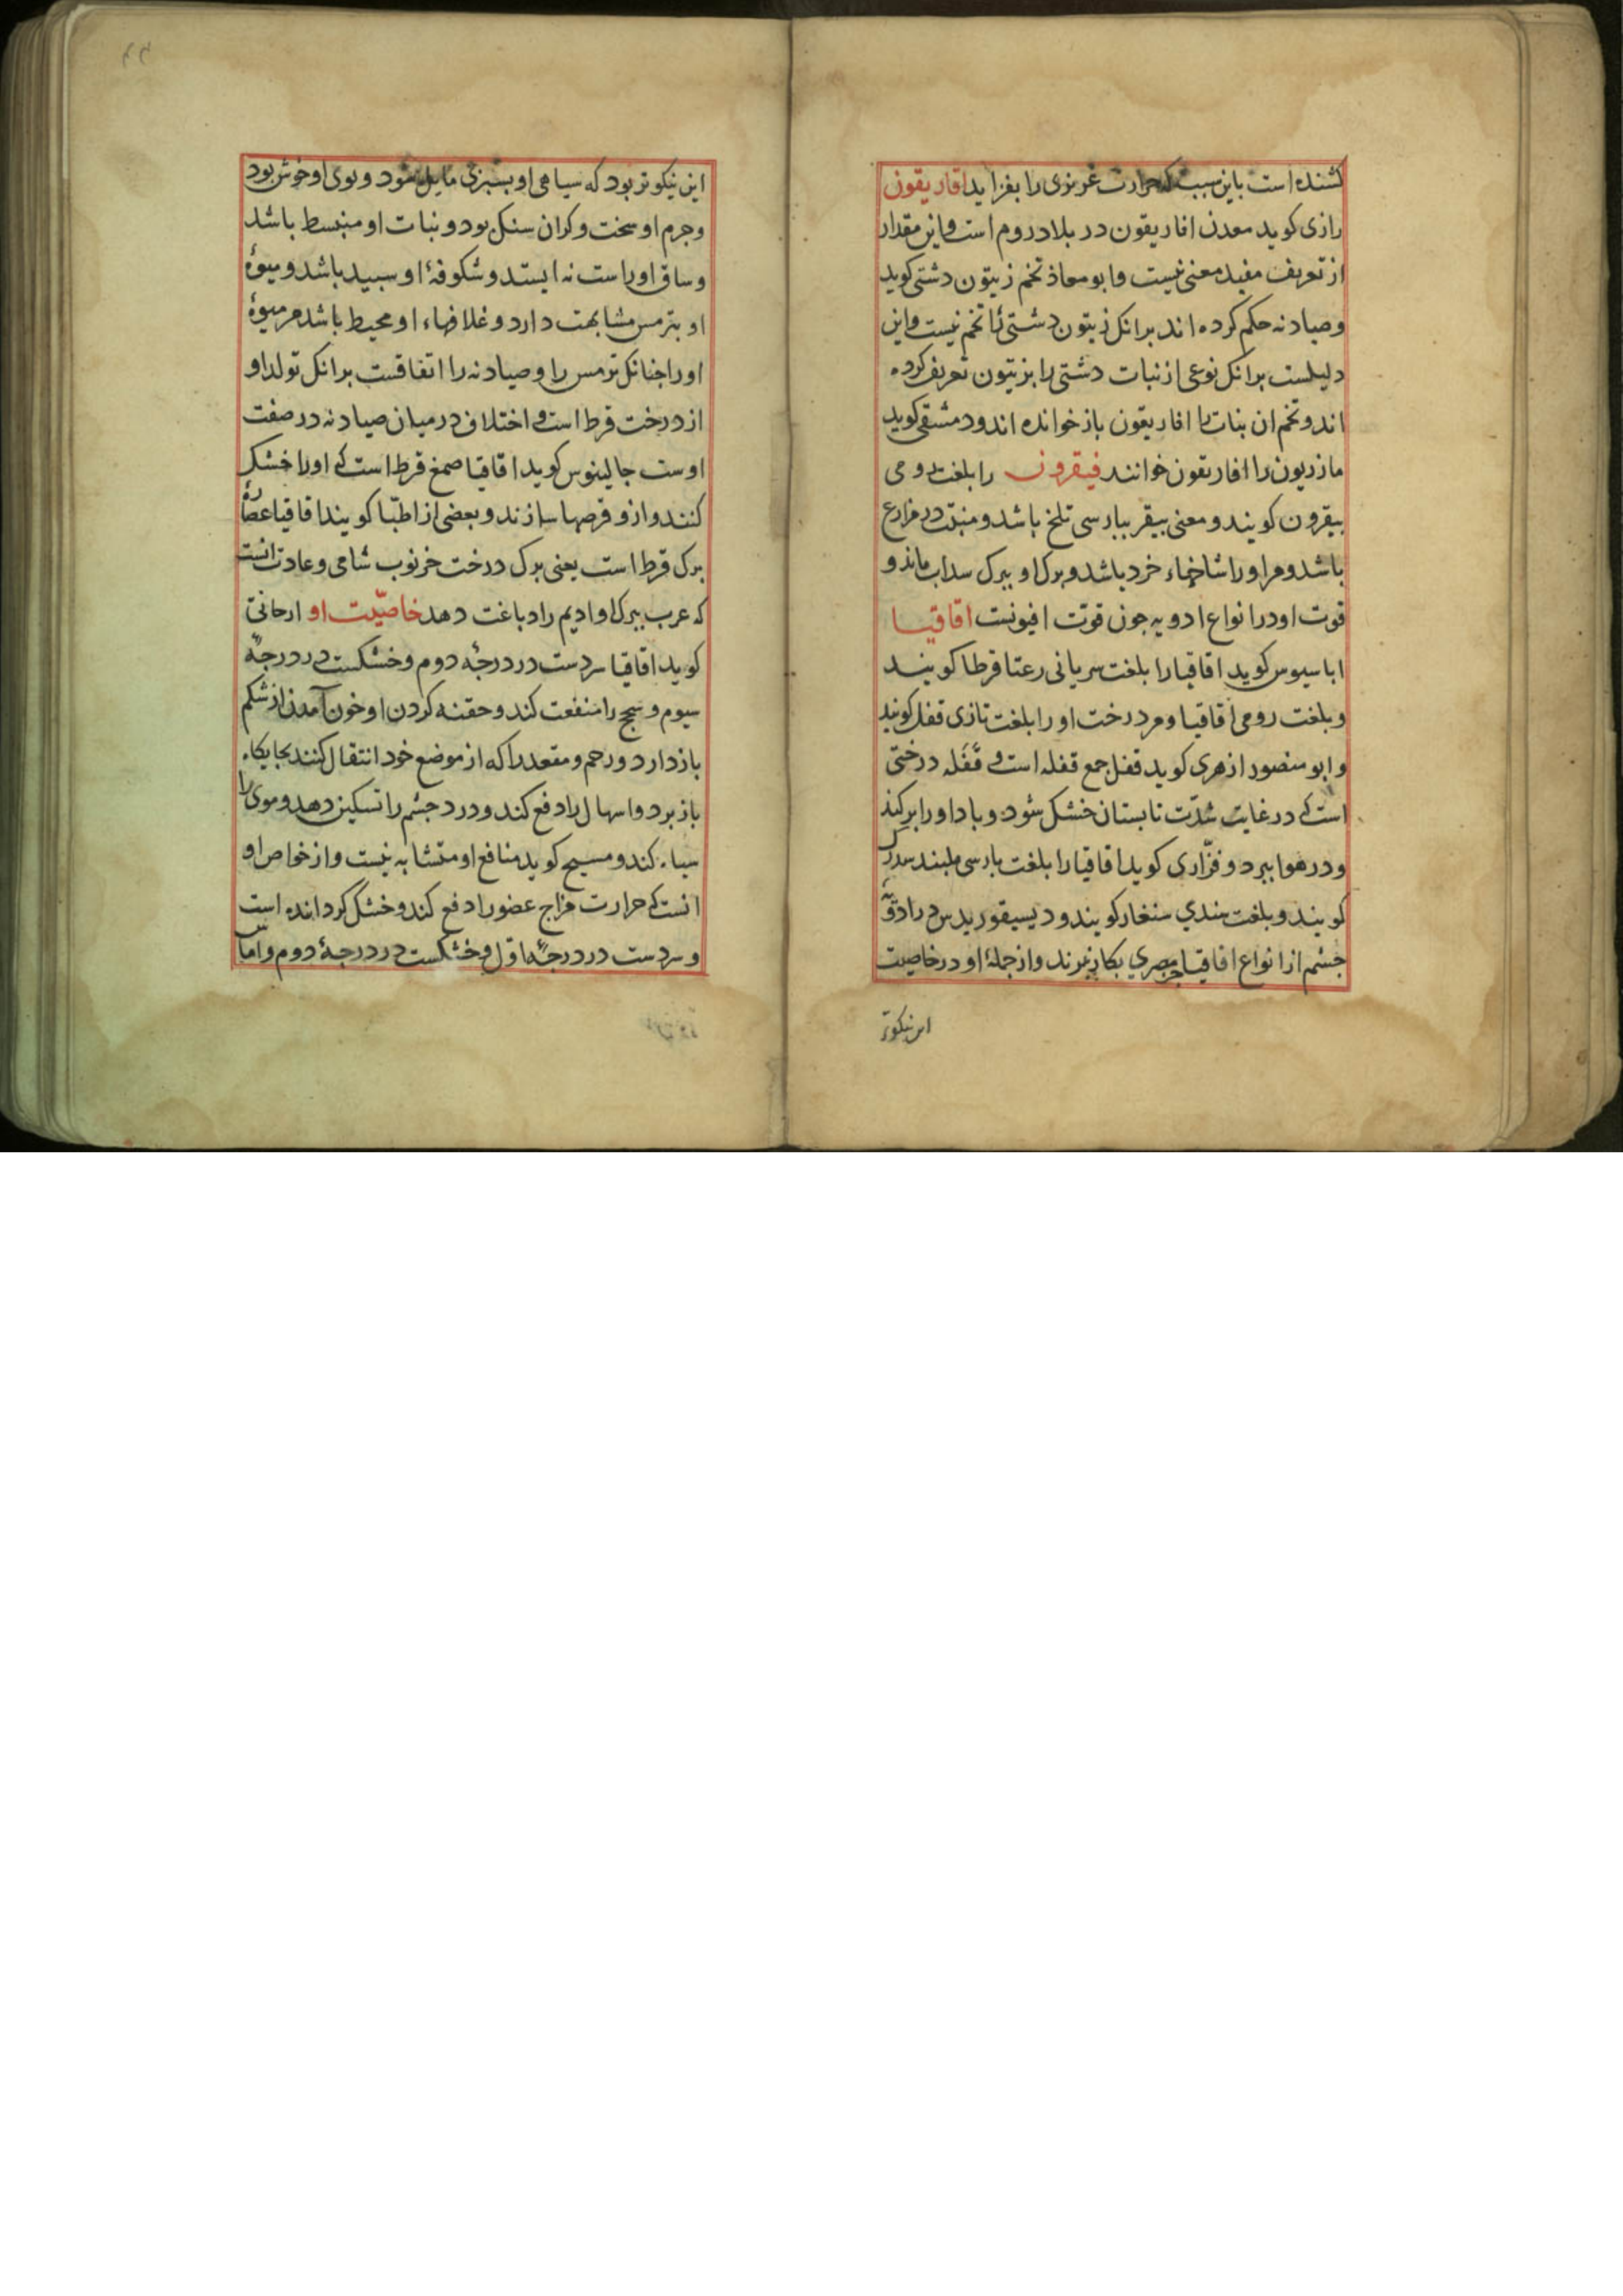 کشنده است باین سبب که حرارت غریزی را بفزاید افاریقون
رازی کوید معدن افاریقون در بلاد روم است و این مقدار
از تعریف مفید معنی نیست و ابو معاذ تخم زیتون دشتی کوید
و صیادنه حکم کرده اند برانکه زیتون دشتی را تخم نیست و این
دلیلست برانکه نوعی از نبات دشتی را بزیتون تعریف کرده
اند و تخم ان نبات را افاریقون باز خوانده اند و دمشقی کوید
مازریون را افاریقون خوانند فیقرون را بلغت رومی
بیقرون کویند و معنی بیقر ببارسی تلخ باشد و منبت در مزارع
باشد و مر اورا شاخهاء خرد باشد و برک او ببرک سداب ماند و
قوت او در انواع ادویه جون قوّت افیونست اقاقیا
اباسیوس کوید اقاقیا را بلغت سریانی رعتا قرطا کویند
و بلغت رومی اقاقیا و مر درخت او را بلغت تازی قفل کویند
و ابو منصور ازهری کوید قفل جمع قفله است و قَفَله درختی
است که در غایت شدّت تابستان خشک شود و باد اورا بر کند
و در هوا ببرد و فزّاری کوید اقاقیا را بلغت بارسی
کویند و بلغت هندی سنغار کویند و دیسیقوریدس در ادویهٔ
جشم از انواع اقاقیا جز مصری بکار نبرند و از جملهٔ او در خاصیت
این نیکوتر
این نیکوتر بود که سیاهی او بسبزی مایل شود و بوی او خوش بود
و جرم او سخت و کران سنک بود و نبات او منبسط باشد
و ساق او راست نه ایستد و شکوفهٔ او سبید باشد و میوهٔ
او بترمس مشابهت دارد و غلافهاء او محیط باشد مر میوهٔ
اورا جنانکه ترمس را و صیادنه را اتفاقست برانکه تولد او
از درخت قرط است و اختلاف در میان صیادنه در صفت
اوست جالینوس کوید اقاقیا صمغ قرط است که اورا خشک
کنند و ازو قرصها سازند و بعضی از اطبّا کویند اقاقیا عصارهٔ
برک قرط است یعنی برک درخت خرنوب شامی و عادت انست
که عرب ببرک او ادیم را دباغت دهد خاصیّت او ارجانی
کوید اقاقیا سردست در درجهٔ دوم و خشکست در درجهٔ
سیوم و سحج را منفعت کند و حقنه کردن او خون آمدن از شکم
باز دارد و رحم و مقعد را که از موضع خود انتقال کنند بجایکاه
باز برد و اسهال را دفع کند و درد جشم را تسکین دهد و موی را
سیاه کند و مسیح کوید منافع او متشابه نیست و از خواص او
انست که حرارت مزاج عضو را دفع کند و خشک کرداننده است
و سردست در درجهٔ اوّل و خشکست در درجهٔ دوم و امّا